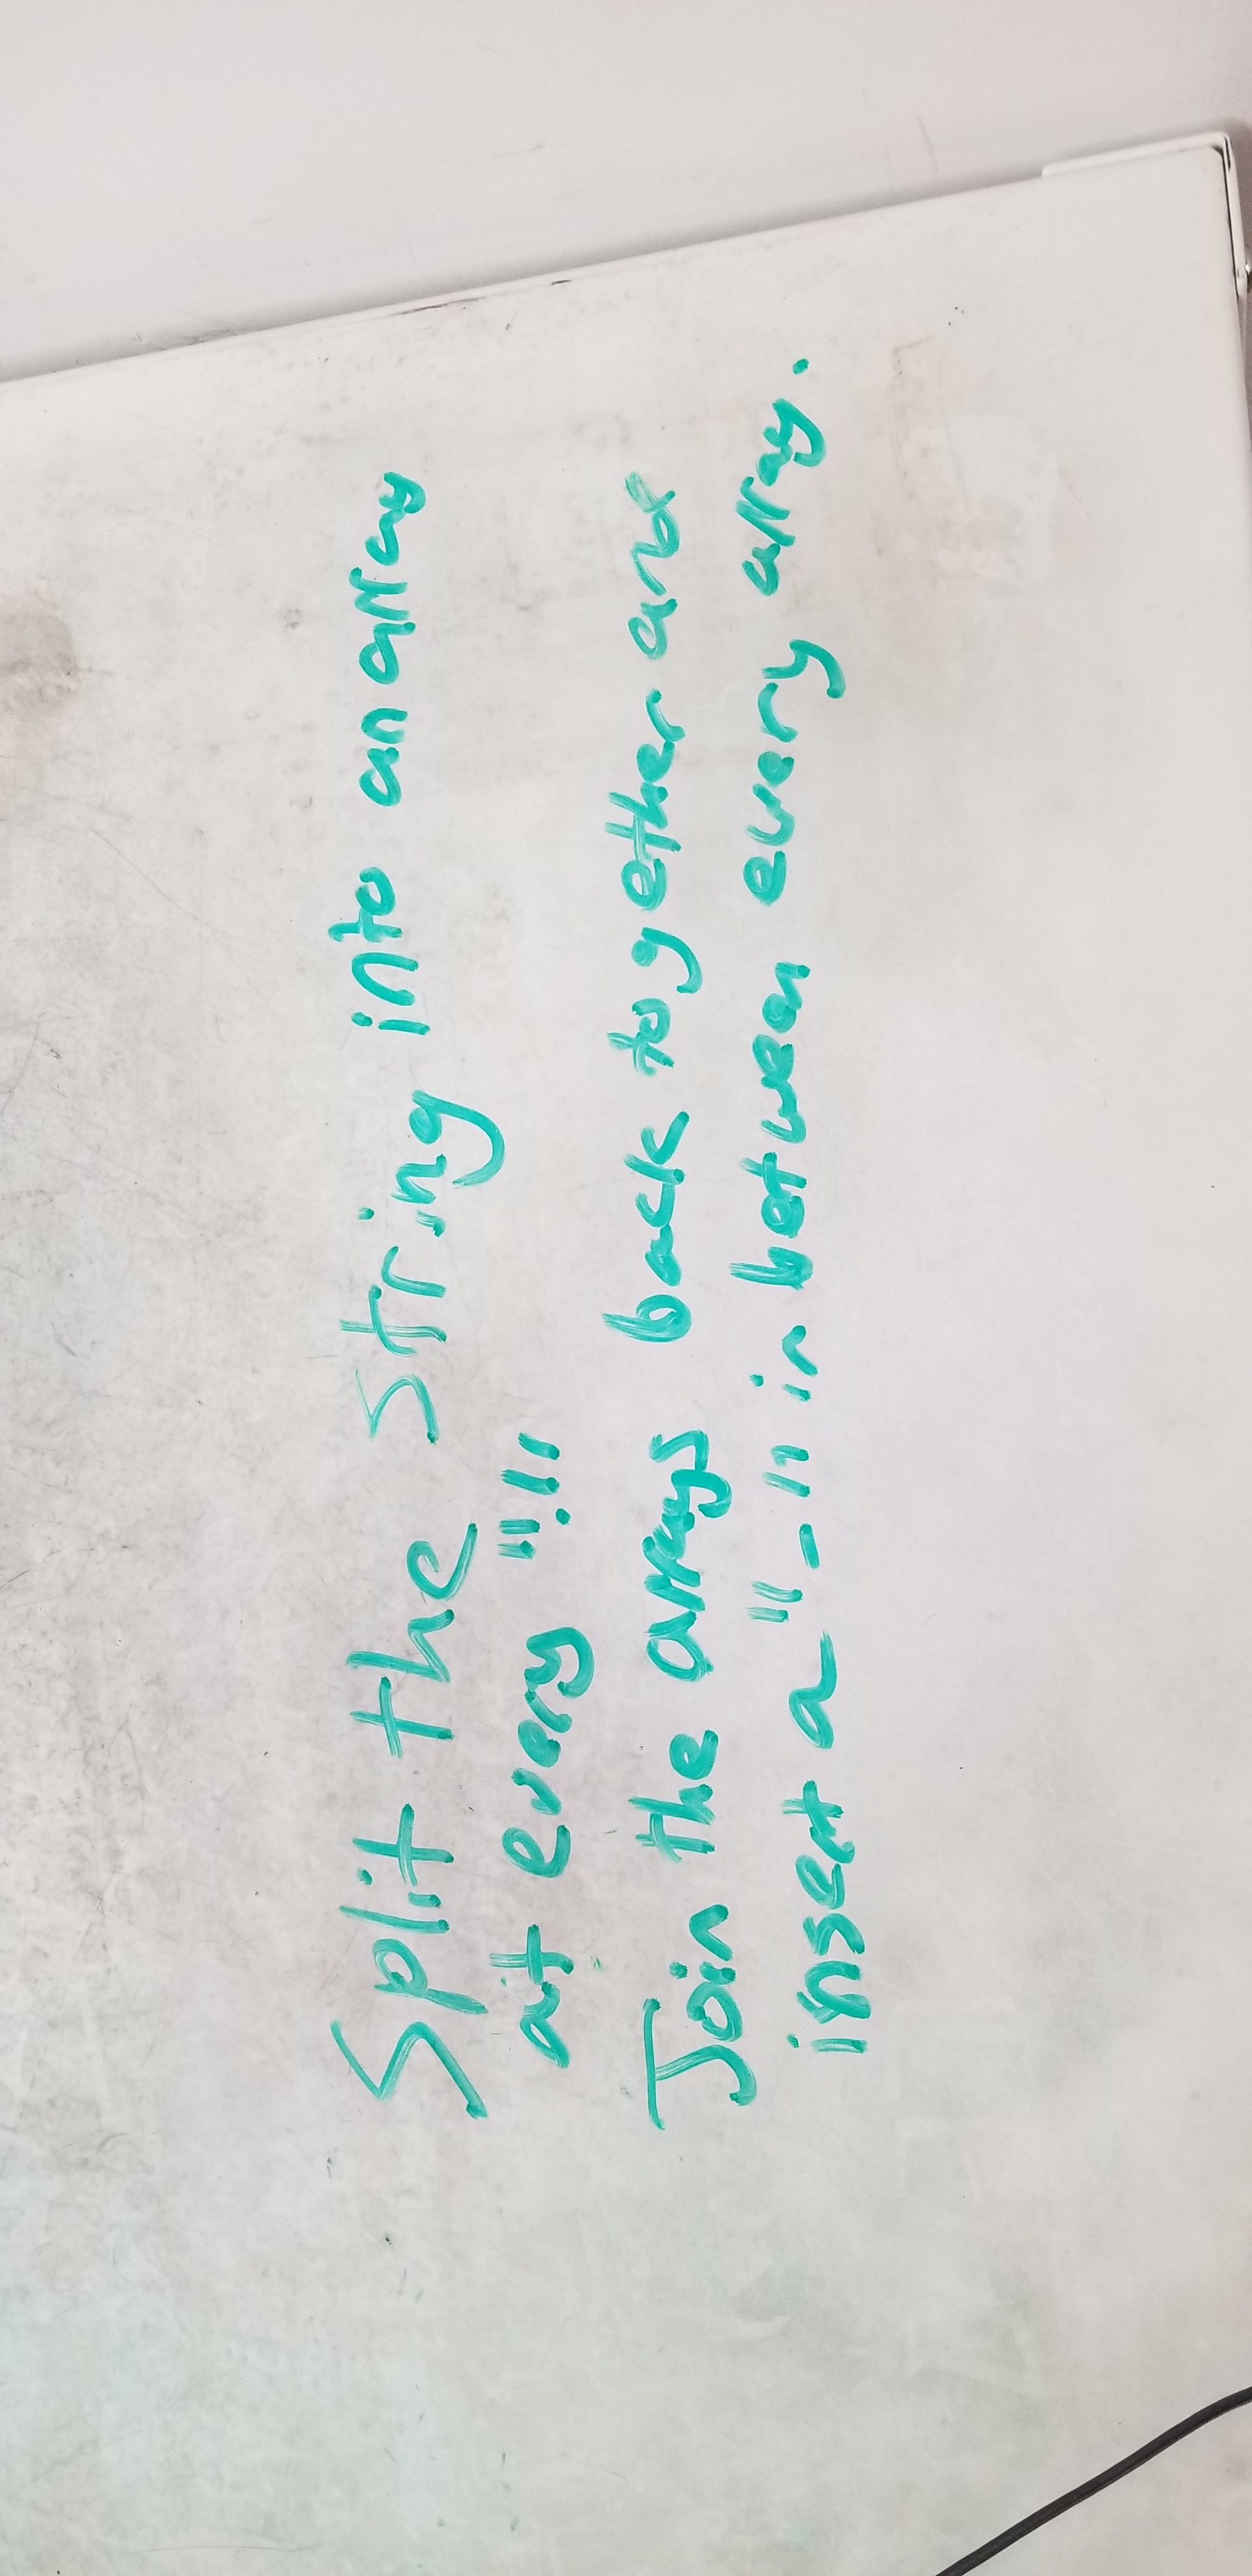 Split the string into an array
at every "."
Join the arrays back together and
insert a "-" in between every array.